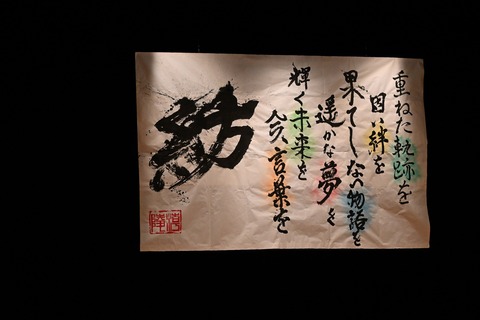 重ねた軌跡を
固い絆を
果てしない物語を
遥かな夢を
輝く未来を
今言葉を
紡